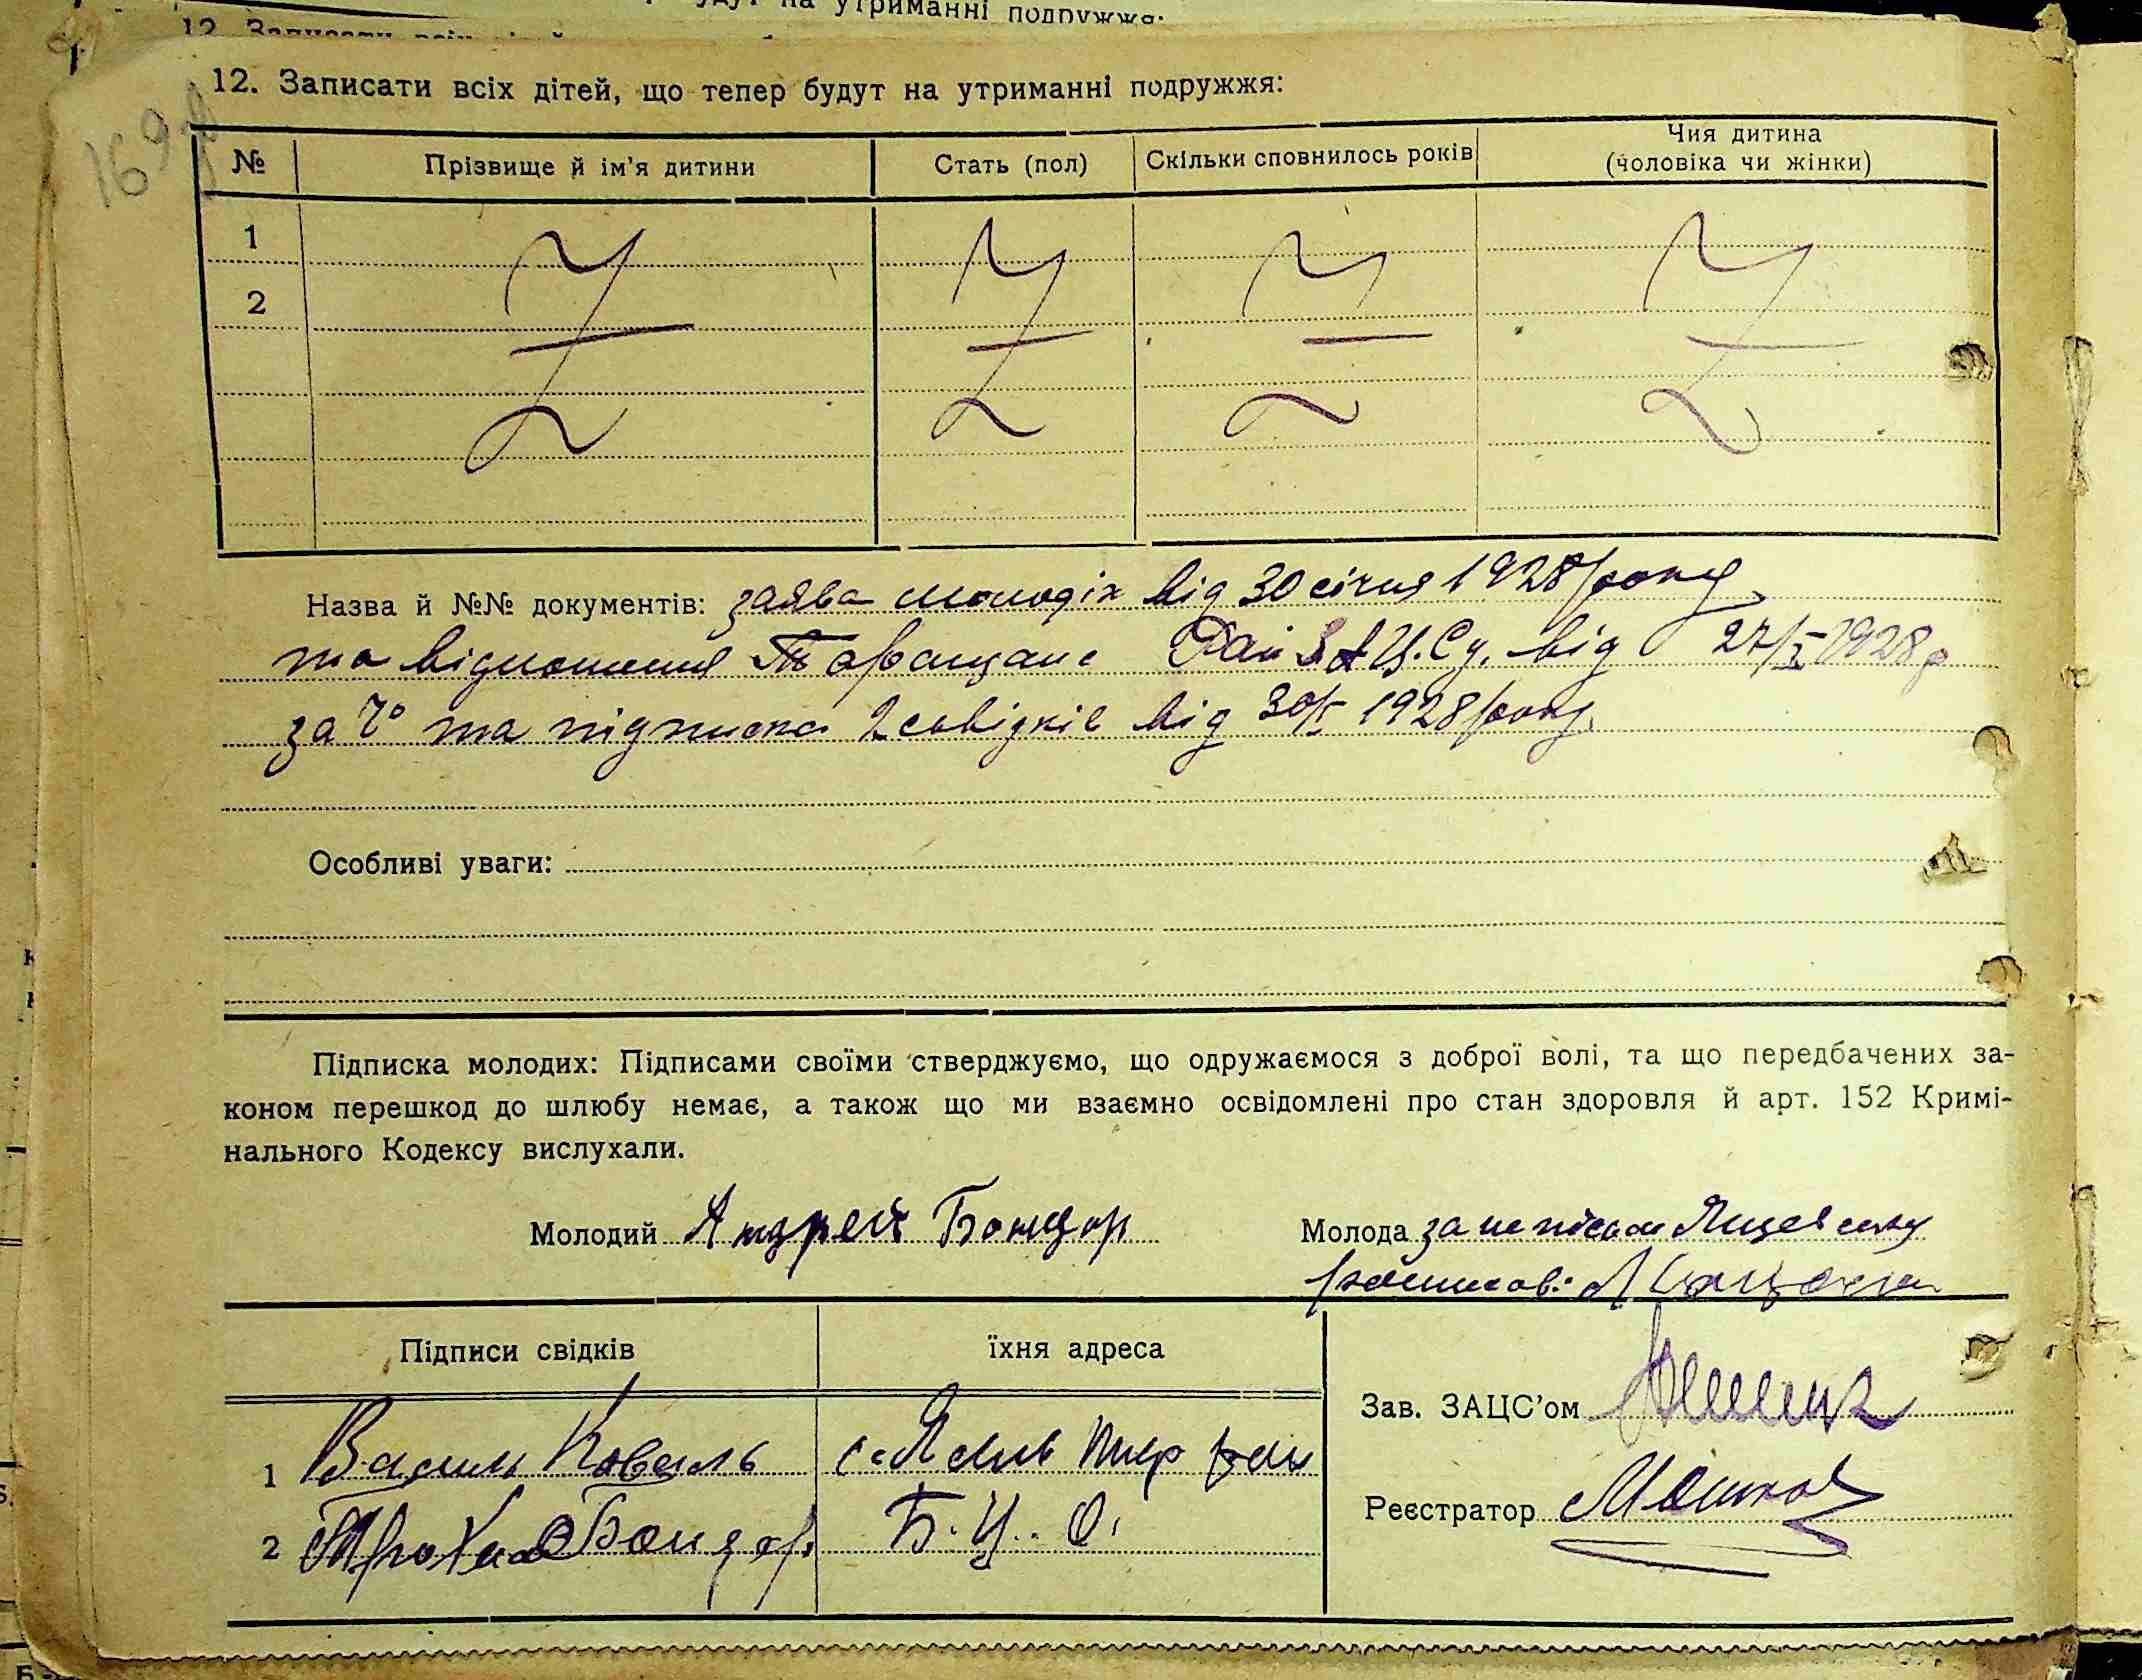 12. Записати всіх дітей, що тепер будут на утриманні подружжя:
169
№ Прізвище й ім'я дитини Стать (пол) Скільки сповнилось років Чия дитина
(чоловіка чи жінки)
1
2
Назва й №№ документів: заява молодіх від 30 січня 1928 року
та відношення Таращанс Рай З А Ц. Су. від 27/I 1928 р
за № та підписка 2 свідків від 30/I 1928 року.
Особливі уваги:
Підписка молодих: Підписами своїми стверджуємо, що одружаємося з доброї волі, та що передбачених за-
коном перешкод до шлюбу немає, а також що ми взаємно освідомлені про стан здоровля й арт. 152 Кримі-
нального Кодексу вислухали.
Молодий Андрей Бондор Молода за непісьм
Підписи свідків їхня адреса
Зав. ЗАЦС'ом
1 Василь Коваль
Реєстратор
2 Трохим Бондар. Б. Ц. О.